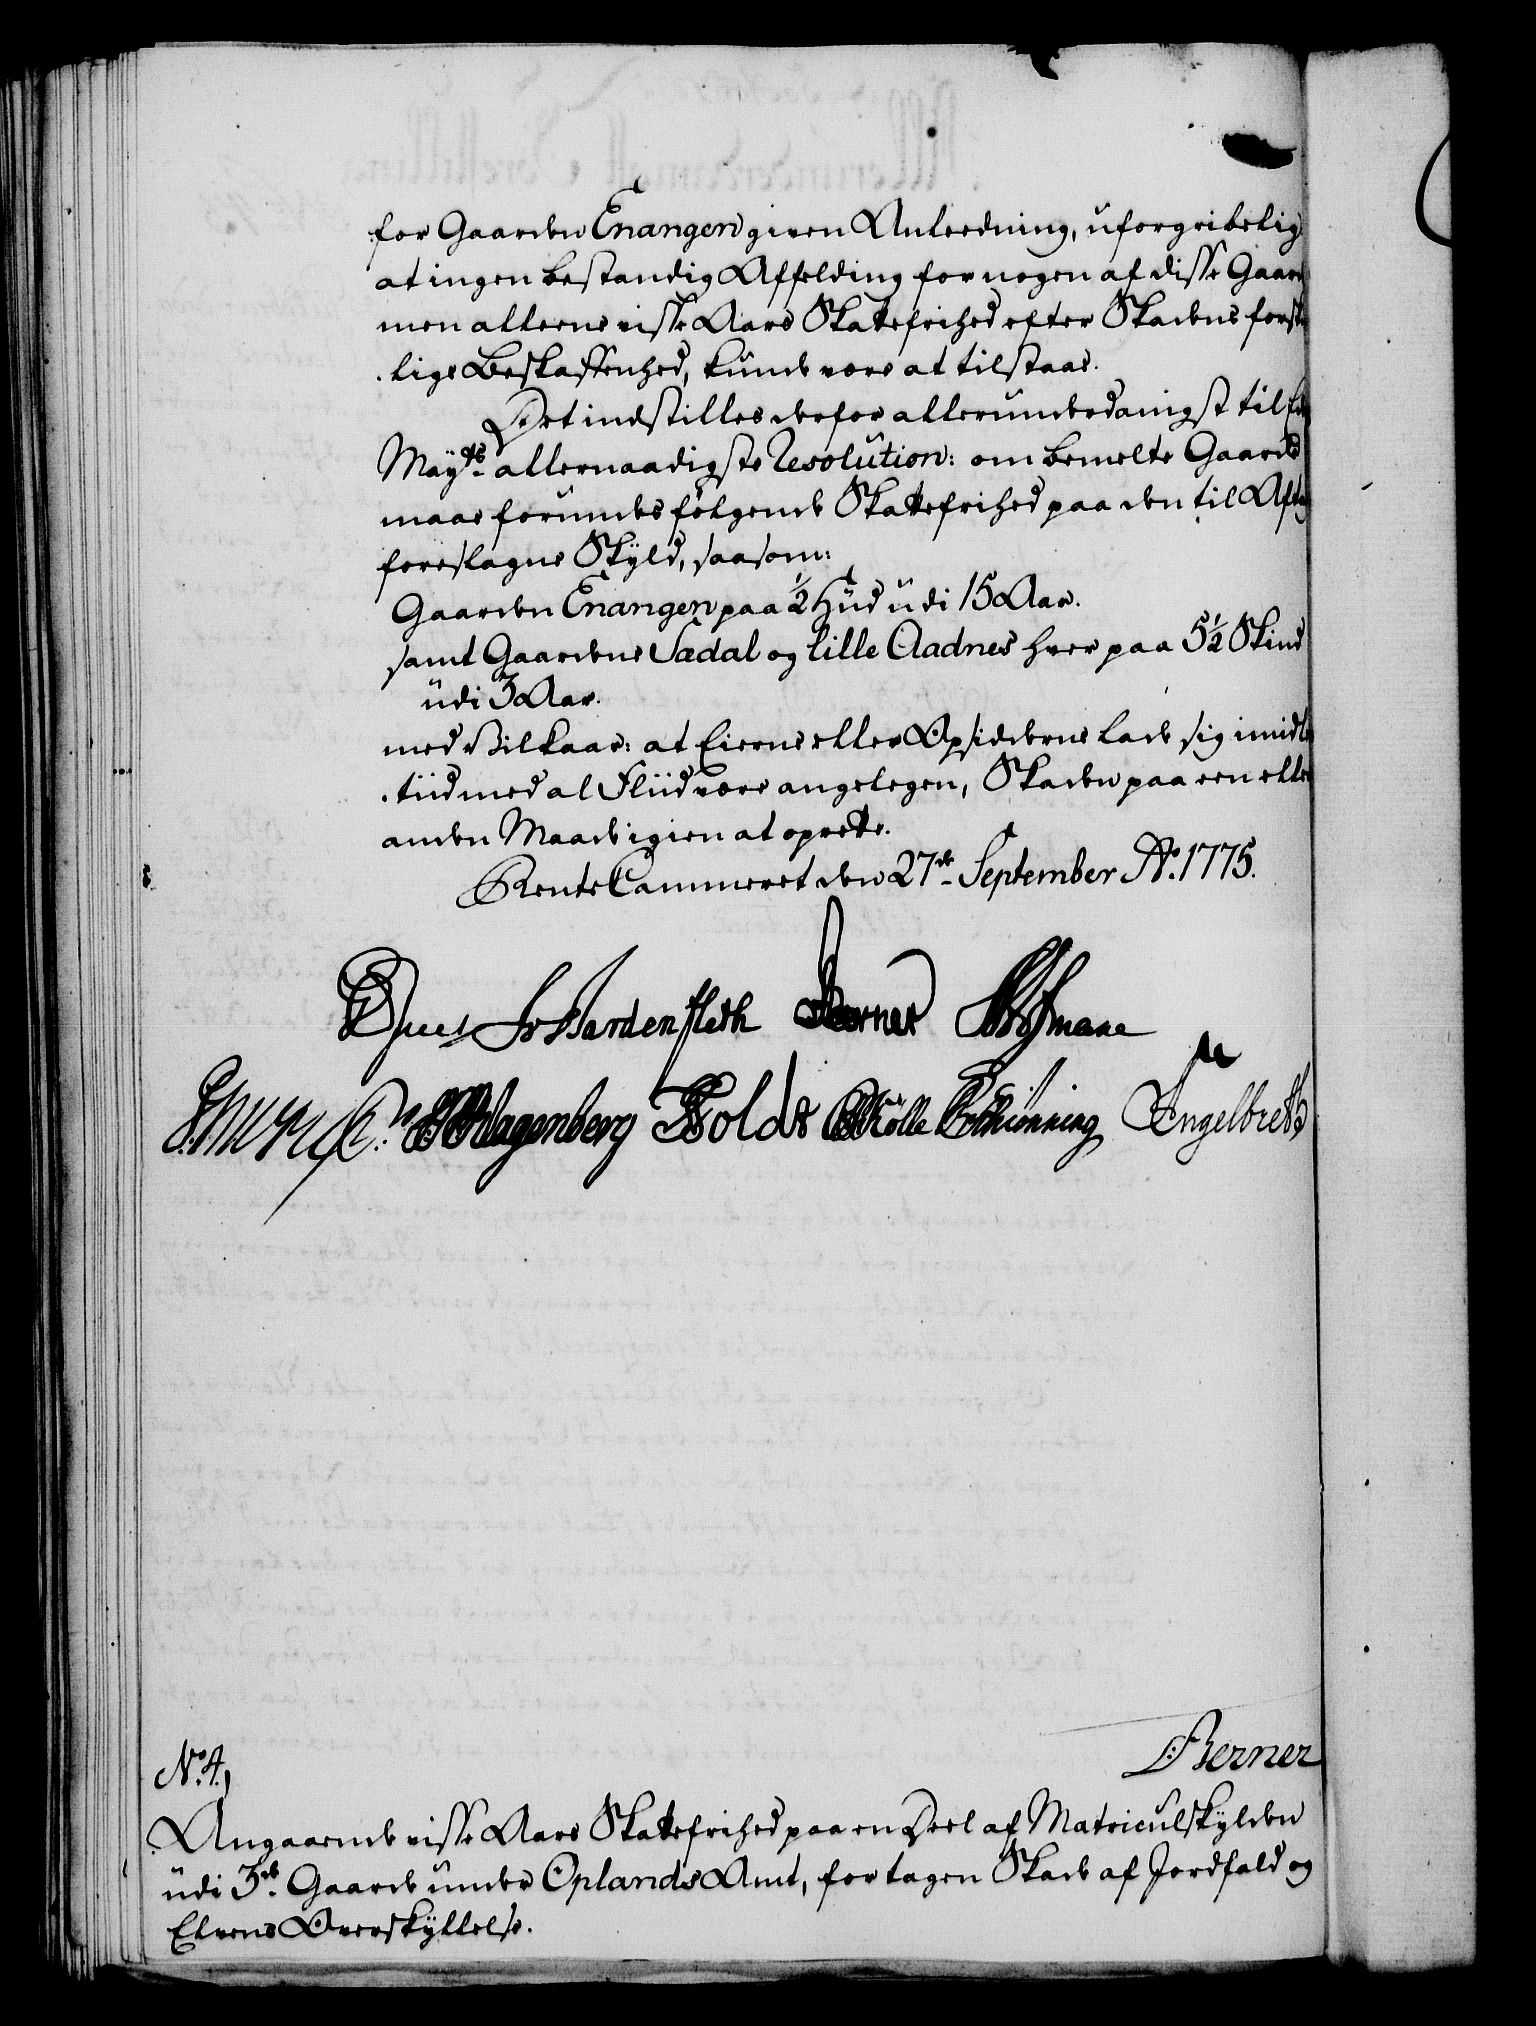 for Gaarden Enangen given Anleedning, uforgribelig
at ingen bestandig Affelding for nogen af disse Gaard
men alleene visse Aars Skattefrihed efter Skadens forskiel
lige Beskaffenhed, kunde være at tilstaae.
Det indstilles derfor allerunderdanigst til
Mayts. allernaadigste Resolution: om bemelte Gaarde
maae forundes følgende Skattefrihed paa den til Aftag
foreslagne Skyld, saasom:
Gaarden Enangen paa ½ Hud udi 15 Aar.
samt Gaardene Sædal og lille Aadnes hver paa 5½ Skind
udi 3 Aar.
med Vilkaar: at Eierne eller Opsidderne lade sig imidler
tiid med al Fliid være angelegen, Skaden paa een eller
anden Maade igien at oprette.
Rente Cammeret den 27de September Ao. 1775.
Wardenfleth Berner Hofmann
Klagenberg Holdt Rølle Schiønning Engelbreth
Berner
No. 4.
Angaaende visse Aars Skattefrihed paa en Deel af Matriculskylden
udi 3de Gaarde under Oplands Amt, for tagen Skade af Jordfald og
Elvens Overskyllelse.